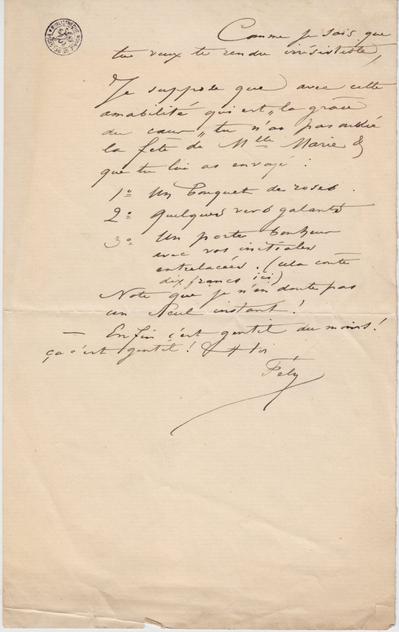 Comme je sais que
tu veux te rendre irrésistible,
Je suppose que avec cette
amabilité qui est „la grâce
du cœur„ tu n'as pas oublié
la fête de Mlle Marie &
que tu lui as envoyé :
1º Un Bouquet de roses.
2º Quelques vers galants
3º Un porte bonheur
avec vos initiales
entrelacées. (cela coute
dix francs ici)
Note que je n'en doute pas
un seul instant !
— Enfin c'est gentil du moins !
ça c'est gentil !
Fély